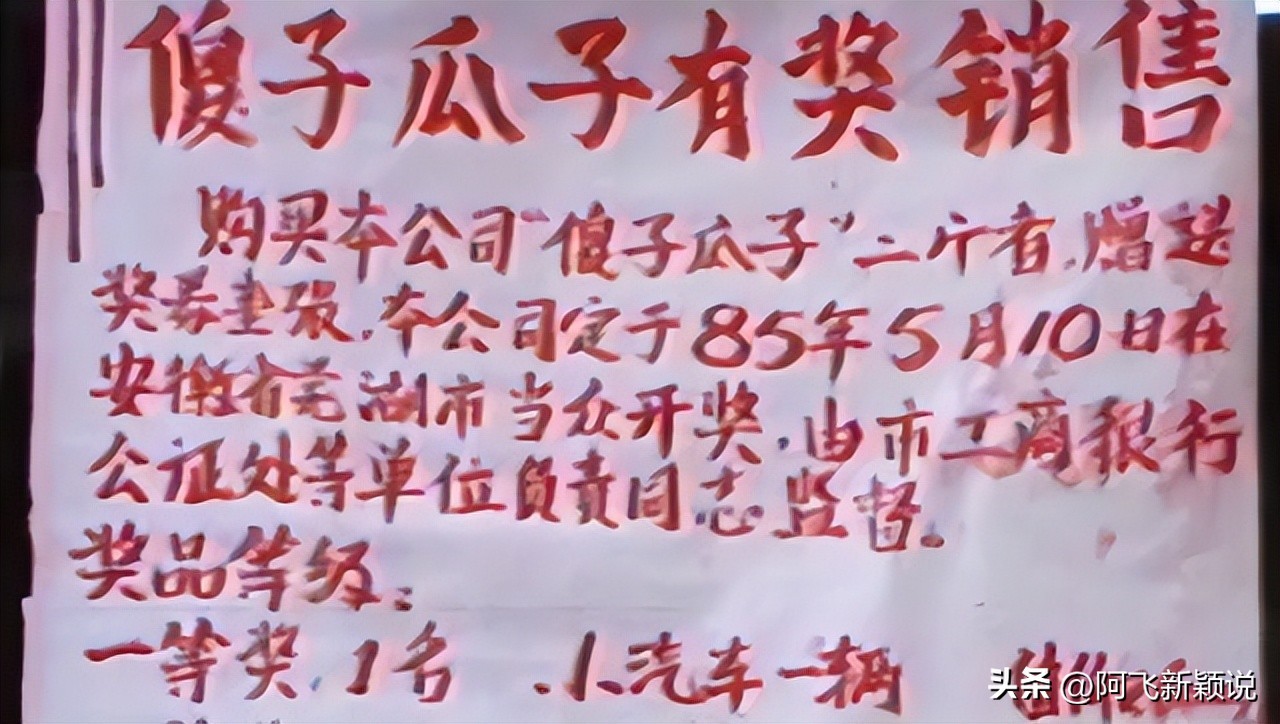 傻子瓜子有奖销售
购买本公司“傻子瓜子”二斤者，赠送
奖券壹张。本公司定于85年5月10日在
安徽省芜湖市当众开奖，由市工商银行
公证处等单位负责同志监督。
奖品等级：
一等奖，1名 小汽车一辆
头条 @阿飞新颖说